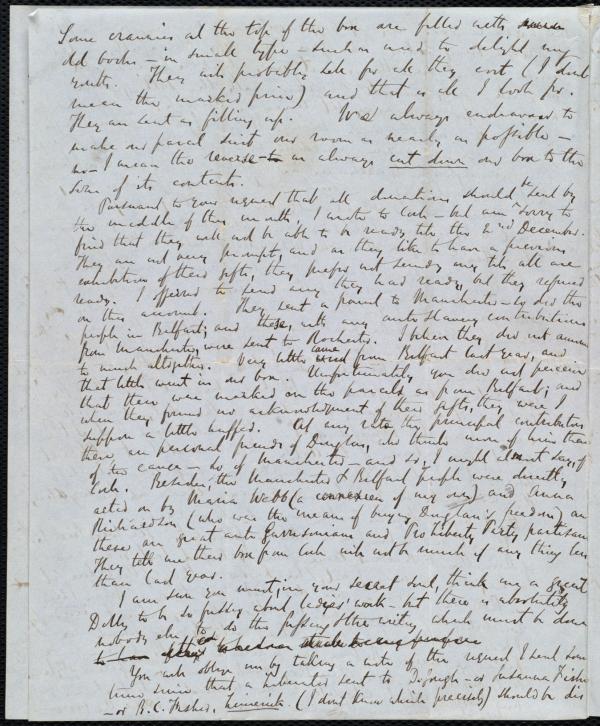 Some crannies at the top of the box are filled with
old books – in small type – such as used to delight my
youth. They will probably sell for all they cost (I don't
mean the marked price) and that is all I look for.
They are sent as filling up. We always endeavour to
make our parcel suit our room as nearly as possible –
no – I mean the reverse – as always cut down our box to the
size of its contents.
Pursuant to your request that all donations should be sent by
the middle of this month, I wrote to Cork – but am sorry to
find that they will not be able to be ready till the 2nd December.
They are not very prompt, and as they like to have a previous
exhibition of their gifts, they prefer not sending any till all are
ready. I offered to send any they had ready, but they refused
on this account. They sent a parcel to Manchester – so did the
people in Belfast; and these, with any anti slavery contributions
from Manchester, were sent to Rochester. I believe they did not amount
to much altogether. Very little came from Belfast last year, and
that little went in our box. Unfortunately you did not perceive
that these were marked on the parcels as from Belfast; and
when they found no acknowledgment of their gifts, they were I
suppose a little huffed. At any rate the principal contributors
there are personal friends of Douglass, who think more of him than
of the cause – so of Manchester – and so, I might almost say, of
Cork. Besides, the Manchester & Belfast people were directly
acted on by Maria Webb (a connexion of my own) and Anna
Richardson (who was the means of buying Douglass's freedom) and
these are great anti Garrisonians and Pro Liberty Party partisans
They tell me their box from Cork will not be much if any thing less
than last year.
I am sure you must, in your secret soul, think me a great
Dolly to be so fussing about ladies' work – but there is absolutely
nobody else to do the fussing & the writing which must be done
You will oblige me by taking a note of the request I sent some
time since that a Liberator sent to Dr – or Susanna Fisher
– or B. C. Fisher, Limerick (I dont know which precisely) should be dis